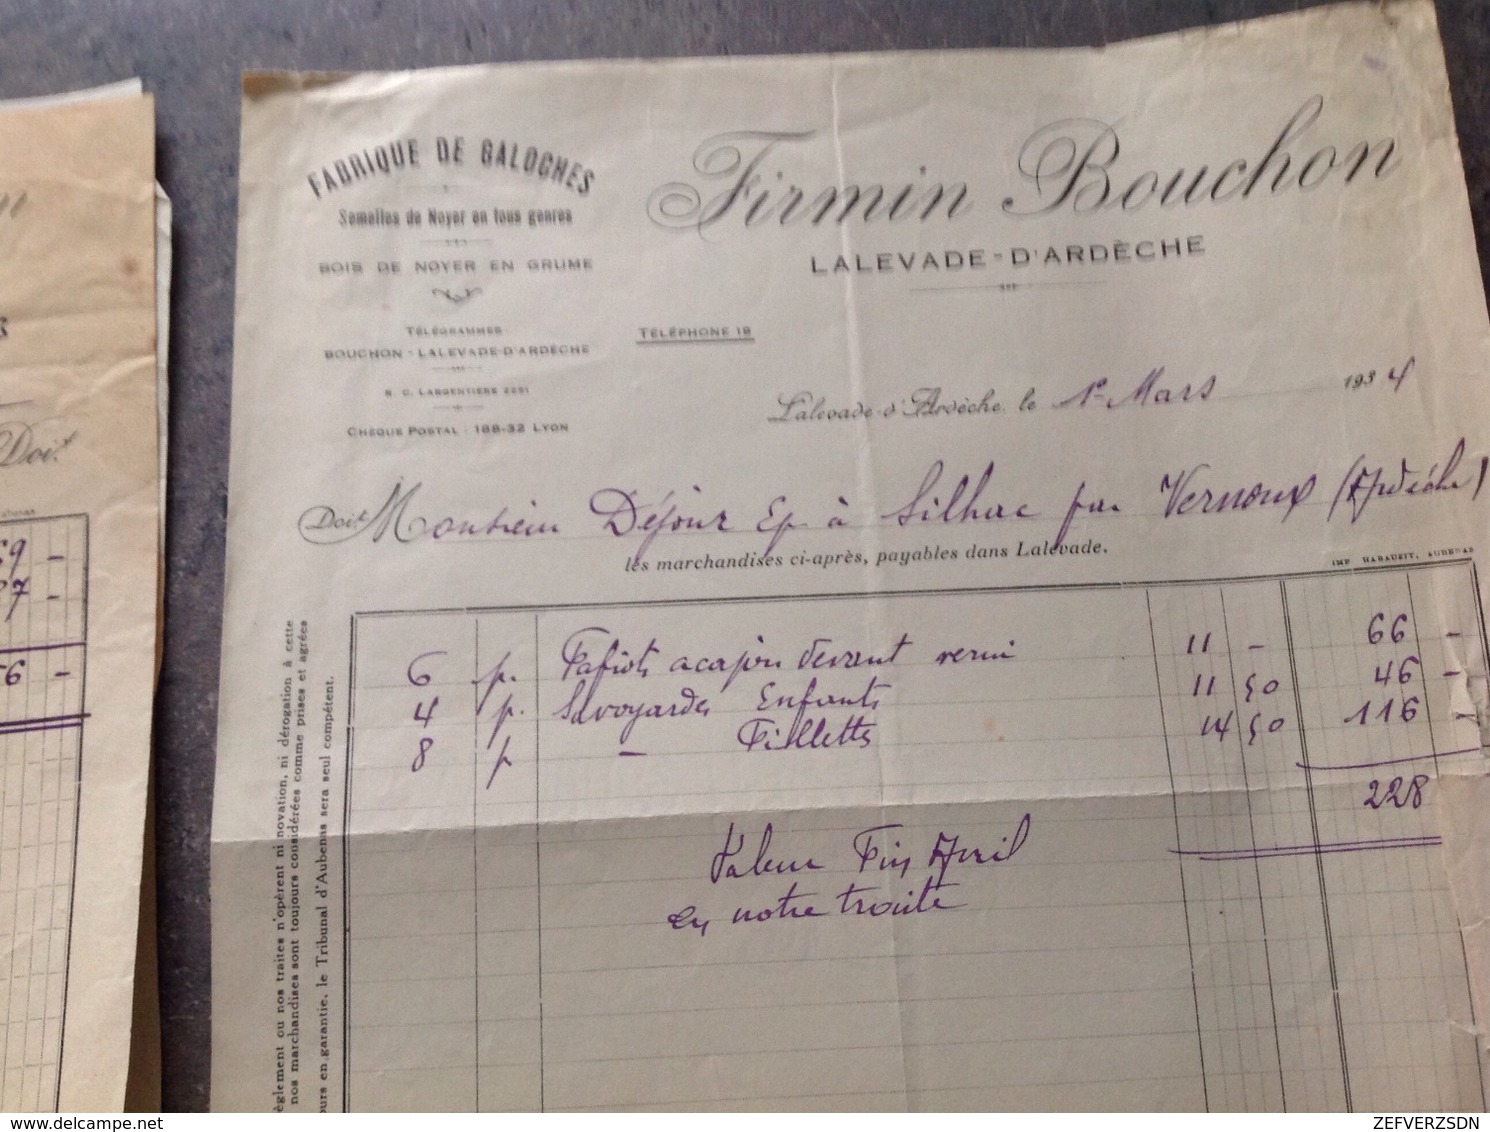 FABRIQUE DE GALOCHES
Semelles de Noyer en tous genres
BOIS DE NOYER EN GRUME
TÉLÉGRAMMES
BOUCHON - LALEVADE-D'ARDÈCHE
R. C. LARGENTIÈRE 2251
CHÈQUE POSTAL : 188-32 LYON
Firmin Bouchon
LALEVADE-D'ARDÈCHE
TÉLÉPHONE 18
Lalevade-d'Ardèche, le 1er Mars 1934
Doit Monsieur Déjour Ep à Silhac par Vernoux (Ardèche)
les marchandises ci-après, payables dans Lalevade.
IMP HABAUZIT, AUBENAS
6 p. Fafiots acajou devant verni 11 - 66 -
4 p. Savoyardes Enfants 11 50 46 -
8 p - Fillettes 14 50 116 -
228
Valeur Fin Avril
en notre traite
règlement ou nos traites n'opèrent ni novation, ni dérogation à cette
nos marchandises sont toujours considérées comme prises et agrées
ours en garantie, le Tribunal d'Aubenas sera seul compétent.
Doit
69 -
87 -
56 -
ZEFVERZSDN